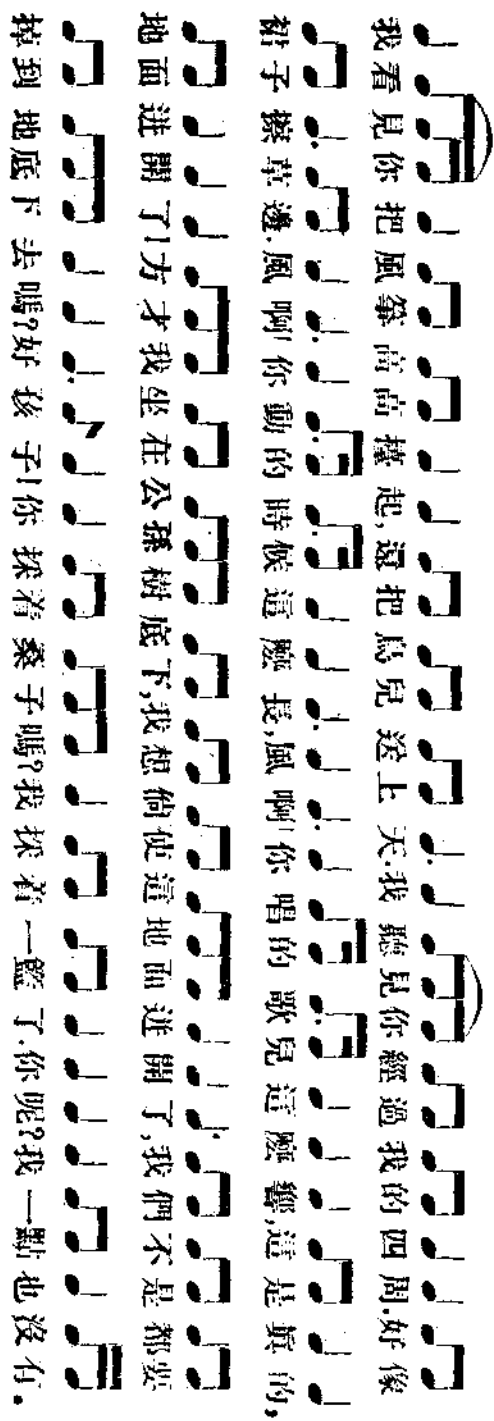 我看見你把風箏高高擡起,還把鳥兒送上天.我聽見你經過我的四周.好像
裙子擦草邊.風啊!你動的時候這麽長,風啊!你唱的歌兒這麽響,這是眞的,
地面迸開了!方才我坐在公孫樹底下,我想倘使這地面迸開了,我們不是都要
掉到地底下去嗎?好孩子!你採着桑子嗎?我採着一籃了.你呢?我一點也沒有.